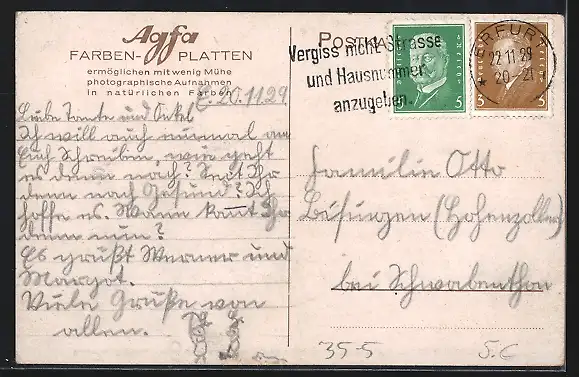 Agfa
FARBEN- PLATTEN
ermöglichen mit wenig Mühe
photographische Aufnahmen
in natürlichen Farben
POSTKA
Vergiss nicht Strasse
und Hausnummer
anzugeben.
5 5
3 3
ERFURT
22.11.29
20-21
E. 20.11.29
Liebe Tante und Onkel
Ich will auch nunmal an
Euch Schreiben, wie geht
es denn noch? Seit Ihr
denn noch Gesund? Ich
hoffe es. Wann kommt Ihr
denn nun?
Es grüßt Werner und
Margot.
Viele Grüße von
allen.
Familie Otto
Bisingen (Hohenzollern)
bei Schwabenthor
35-5
S.C